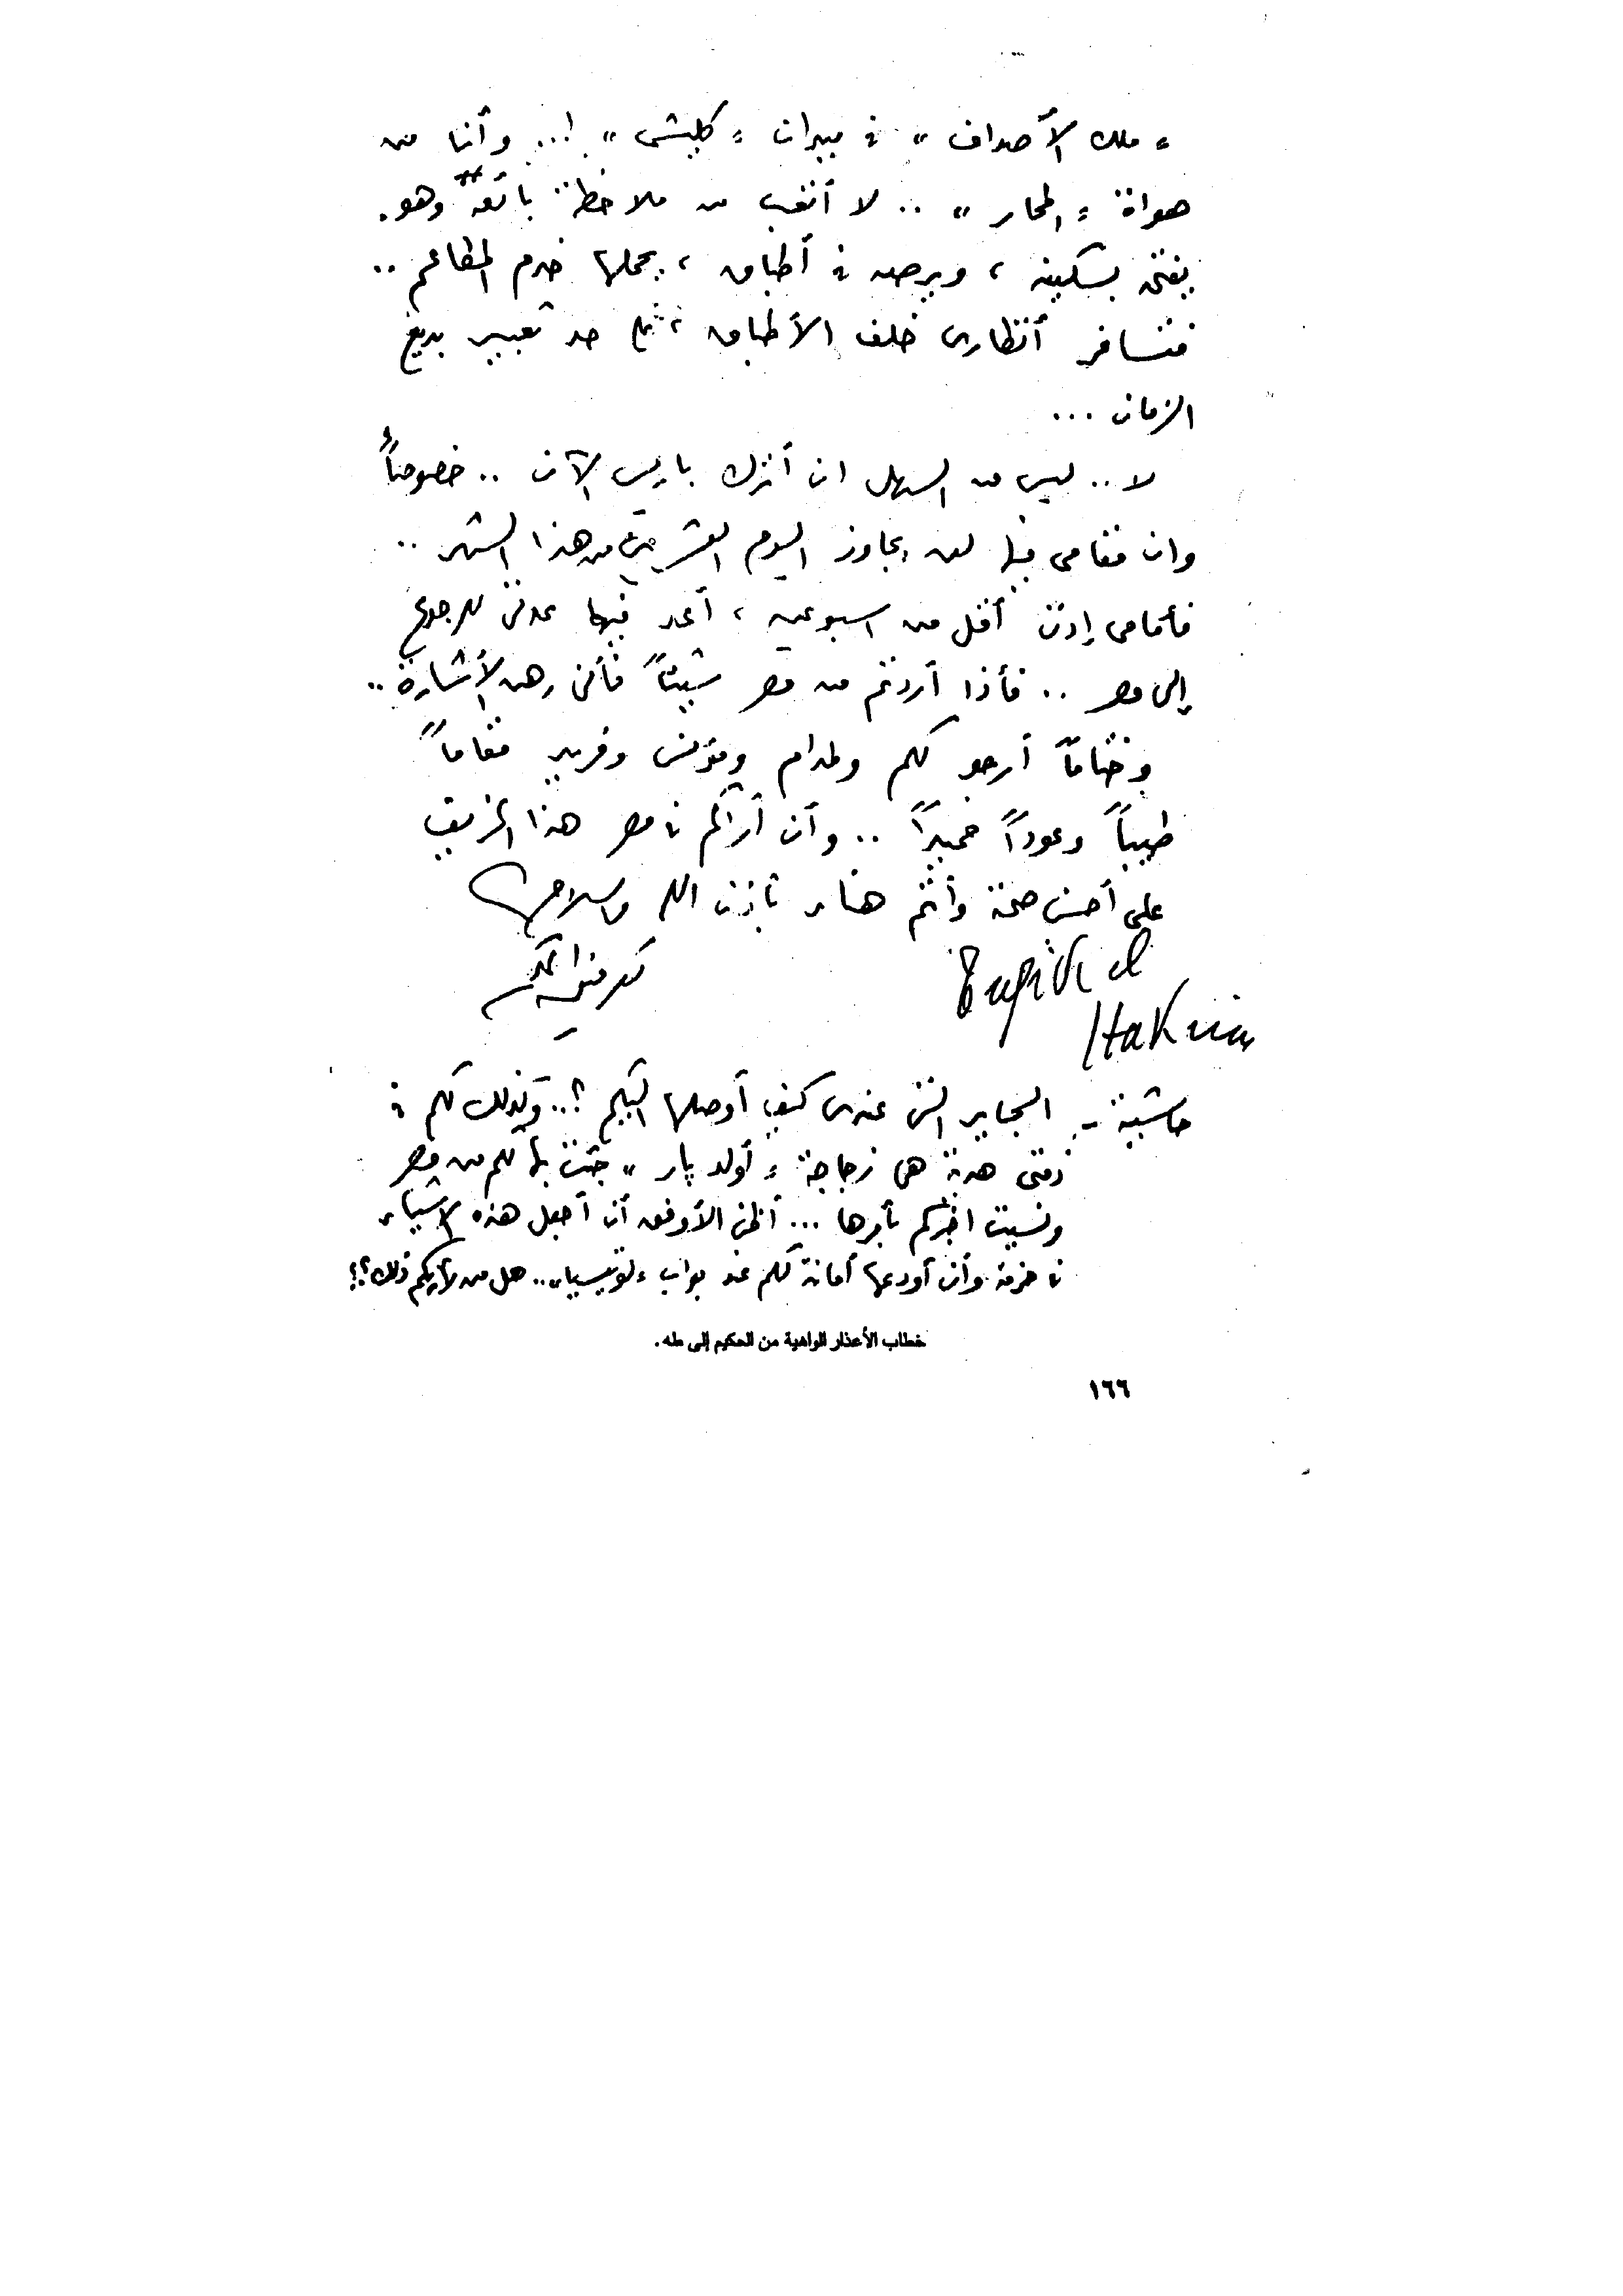 « ملك الأصداف » في ميدان « كليشى » !... وأنا من
هواة « المحار » .. لا أتعب من ملاحظة بائعه وهو
يفتحه بسكينه ، ويرصه في أطباق ، يحملها خدم المطاعم ..
فتسافر أنظارى خلف الأطباق ، على حد تعبير بديع
الزمان ...
لا .. ليس من السهل ان أترك باريس الآن .. خصوصاً
وان مقامى فيها لن يجاوز اليوم العشرين من هذا الشهر ..
فأمامى إذن أقل من اسبوعين ، أعد فيها عدتى للرجوع
إلى مصر .. فأذا أردتم من مصر شيئاً فأنى رهن الأشارة ..
وختاماً أرجو لكم ولمدام ومؤنس وفريد مقاماً
طيباً وعوداً حميداً .. وأن أراكم في مصر هذا الخريف
على أحسن صحة وأتم هناء بأذن الله والسلام
توفيق الحكيم
Tewfik el
Hakim
حاشية - السجاير التى عندى كيف أوصلها اليكم ؟.. وكذلك لكم في
ذمتى هدية هى زجاجة « أولد پار » جئت بها لكم من مصر
ونسيت اخبركم بأمرها ... أظن الأوفق أن أجعل هذه الأشياء
في حزمة وأن أودعها أمانة لكم عند بواب « لوتيسيا » .. هل من رأيكم ذلك ؟؟
خطاب الأعذار الواهية من الحكيم إلى طه .
١٦٦